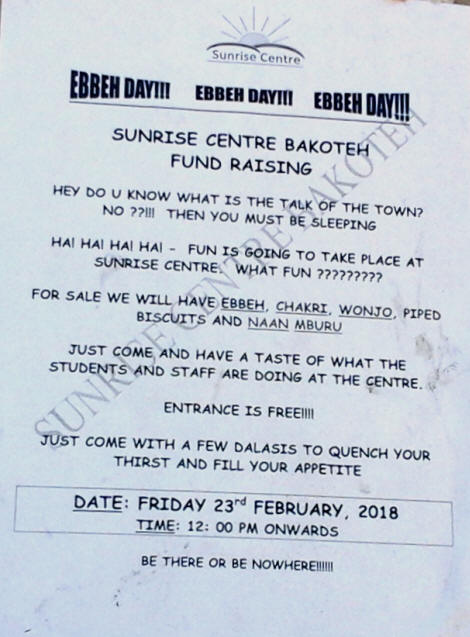 Sunrise Centre
EBBEH DAY!!! EBBEH DAY!!! EBBEH DAY!!!
SUNRISE CENTRE BAKOTEH
FUND RAISING
HEY DO U KNOW WHAT IS THE TALK OF THE TOWN?
NO ??!!! THEN YOU MUST BE SLEEPING
HA! HA! HA! HA! - FUN IS GOING TO TAKE PLACE AT
SUNRISE CENTRE. WHAT FUN ?????????
FOR SALE WE WILL HAVE EBBEH, CHAKRI, WONJO, PIPED
BISCUITS AND NAAN MBURU
JUST COME AND HAVE A TASTE OF WHAT THE
STUDENTS AND STAFF ARE DOING AT THE CENTRE.
ENTRANCE IS FREE!!!!
JUST COME WITH A FEW DALASIS TO QUENCH YOUR
THIRST AND FILL YOUR APPETITE
DATE: FRIDAY 23rd FEBRUARY, 2018
TIME: 12: 00 PM ONWARDS
BE THERE OR BE NOWHERE!!!!!!
SUNRISE CENTRE BAKOTEH